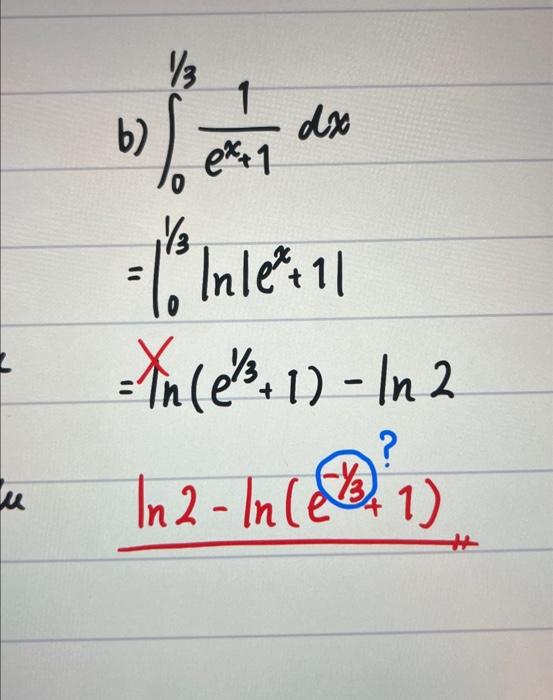 b) ∫₀^{1/3} 1/(eˣ+1) dx
= |₀^{1/3} ln|eˣ+1|
= ln(e^{1/3}+1) - ln 2
?
ln 2 - ln(e^{-1/3}+1)